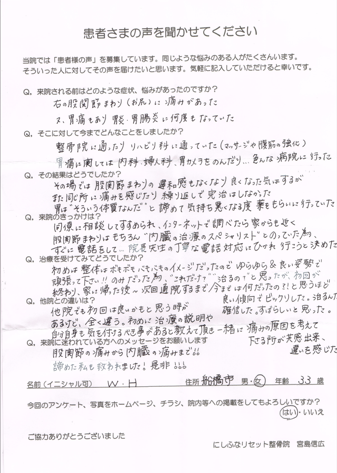 患者さまの声を聞かせてください
当院では「患者様の声」を募集しています。同じような悩みのある人がたくさんいます。
そういった人に対してその声を届けたいと思います。気軽に記入していただけると幸いです。
Q。来院される前はどのような症状、悩みがあったのですか?
右の股関節まわり(お尻)に痛みがあった
又、胃痛もあり胃炎・胃腸炎に何度もなっていた
Q。そこに対して今までどんなことをしましたか?
整骨院に通ったりリハビリ科に通っていた(マッサージや腹筋の強化)
胃痛に関しては内科・婦人科・胃カメラをのんだり…色んな病院に行った
Q。その結果はどうでしたか?
その場では股関節まわりの違和感もなくなり良くなった気はするが
また同じ所に痛みを感じたり繰り返しで完治はしなかった
胃は"そういう体質なんだ"と諦めて気持ち悪くなる度薬をもらいに行っていた
Q。来院のきっかけは?
同僚に相談してすすめられ、インターネットで調べたら家からも近く
股関節まわりはもちろん"内臓の治療のスペシャリスト"とのっていた為、
すぐに電話をして…院長先生の丁寧な電話対応にひかれ行こうと決めた
Q。治療を受けてみてどうでしたか?
初めは整体はボキボキバキバキのイメージだったのでゆらゆら&良い姿勢で
頑張って下さい!!のみだった為、"これだけで?治るの?"と思ったが、初回が
終わり、家に帰った後〜次回通院するまで今までは何だったの?!と思うほど
Q。他院との違いは?
良い傾向でビックリした。治るんだ
他院でも初回は良いかもと思う時が
確信した。すばらしいと思った。
あるけど、全く違う。初めに治療の説明や
自分自身も気を付けるべき事があると教えて頂き一緒に痛みの原因を考えて
Q。来院に迷われている方へのメッセージをお願いします
下さる所が共感出来、
股関節の痛みから内臓の痛みまで!!
違いを感じた
諦めた私も救われました!是非!!!
名前(イニシャル可) W・H 住所 船橋市 男・女 年齢 33 歳
今回のアンケート、写真をホームページ、チラシ、院内等への掲載をしてもよろしいですか?
はい・いいえ
ご協力ありがとうございました
にしふなリセット整骨院 宮島信広